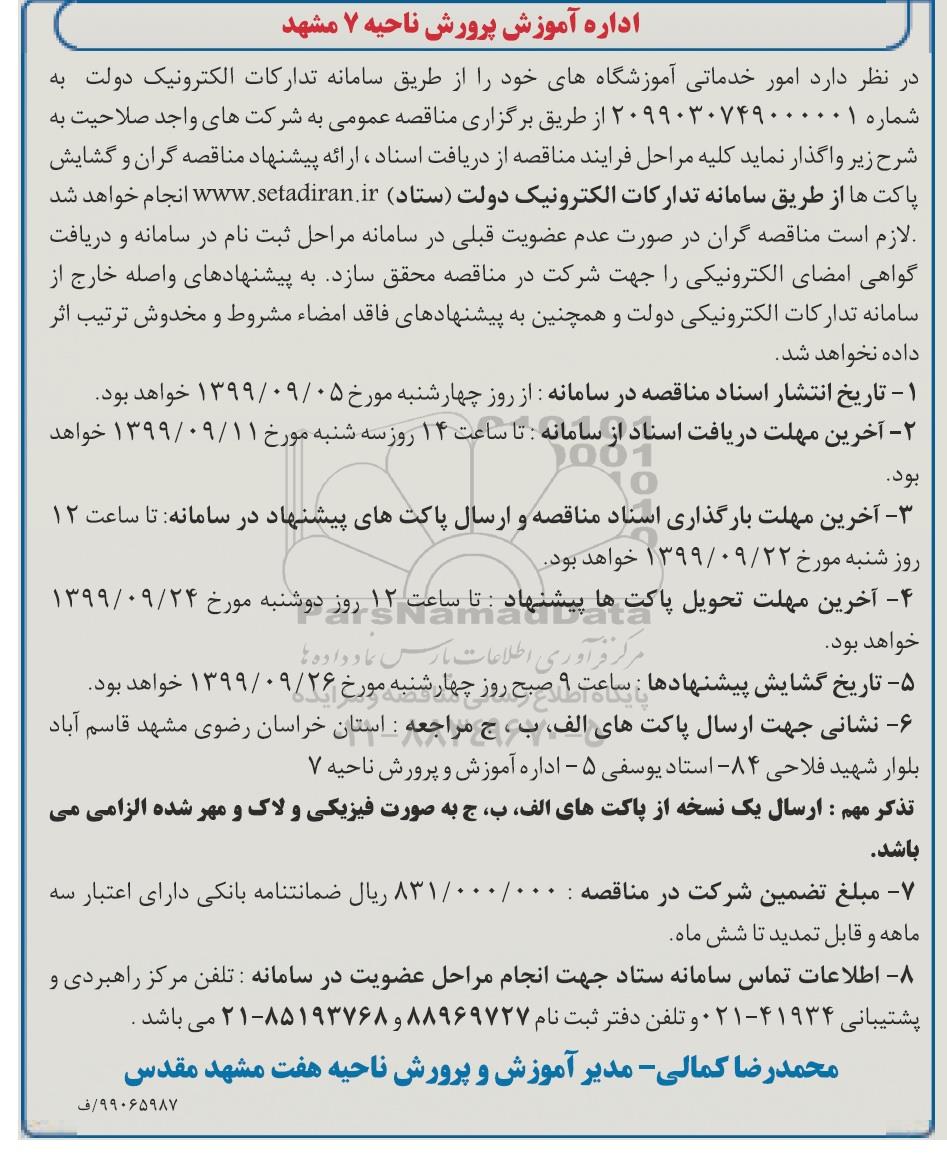 اداره آموزش پرورش ناحیه ۷ مشهد
در نظر دارد امور خدماتی آموزشگاه های خود را از طریق سامانه تدارکات الکترونیک دولت به
شماره ۲۰۹۹۰۳۰۷۴۹۰۰۰۰۰۱ از طریق برگزاری مناقصه عمومی به شرکت های واجد صلاحیت به
شرح زیر واگذار نماید کلیه مراحل فرایند مناقصه از دریافت اسناد ، ارائه پیشنهاد مناقصه گران و گشایش
پاکت ها از طریق سامانه تدارکات الکترونیک دولت (ستاد) www.setadiran.ir انجام خواهد شد
.لازم است مناقصه گران در صورت عدم عضویت قبلی در سامانه مراحل ثبت نام در سامانه و دریافت
گواهی امضای الکترونیکی را جهت شرکت در مناقصه محقق سازد. به پیشنهادهای واصله خارج از
سامانه تدارکات الکترونیکی دولت و همچنین به پیشنهادهای فاقد امضاء مشروط و مخدوش ترتیب اثر
داده نخواهد شد.
۱- تاریخ انتشار اسناد مناقصه در سامانه : از روز چهارشنبه مورخ ۱۳۹۹/۰۹/۰۵ خواهد بود.
۲- آخرین مهلت دریافت اسناد از سامانه : تا ساعت ۱۴ روزسه شنبه مورخ ۱۳۹۹/۰۹/۱۱ خواهد
بود.
۳- آخرین مهلت بارگذاری اسناد مناقصه و ارسال پاکت های پیشنهاد در سامانه: تا ساعت ۱۲
روز شنبه مورخ ۱۳۹۹/۰۹/۲۲ خواهد بود.
۴- آخرین مهلت تحویل پاکت ها پیشنهاد : تا ساعت ۱۲ روز دوشنبه مورخ ۱۳۹۹/۰۹/۲۴
ParsNamadData
خواهد بود.
مرکز فرآوری اطلاعات پارس نماد داده ها
۵- تاریخ گشایش پیشنهادها : ساعت ۹ صبح روز چهارشنبه مورخ ۱۳۹۹/۰۹/۲۶ خواهد بود.
پایگاه اطلاع رسانی مناقصه و مزایده
۶- نشانی جهت ارسال پاکت های الف، ب ، ج مراجعه : استان خراسان رضوی مشهد قاسم آباد
۰۲۱-۸۸۳۴۹۶۷۰-۵
بلوار شهید فلاحی ۸۴- استاد یوسفی ۵ - اداره آموزش و پرورش ناحیه ۷
تذکر مهم : ارسال یک نسخه از پاکت های الف، ب، ج به صورت فیزیکی و لاک و مهر شده الزامی می
باشد.
۷- مبلغ تضمین شرکت در مناقصه : ۸۳۱/۰۰۰/۰۰۰ ریال ضمانتنامه بانکی دارای اعتبار سه
ماهه و قابل تمدید تا شش ماه.
۸- اطلاعات تماس سامانه ستاد جهت انجام مراحل عضویت در سامانه : تلفن مرکز راهبردی و
پشتیبانی ۴۱۹۳۴-۰۲۱و تلفن دفتر ثبت نام ۸۸۹۶۹۷۲۷ و ۸۵۱۹۳۷۶۸-۲۱ می باشد .
محمدرضا کمالی- مدیر آموزش و پرورش ناحیه هفت مشهد مقدس
۹۹۰۶۵۹۸۷/ف